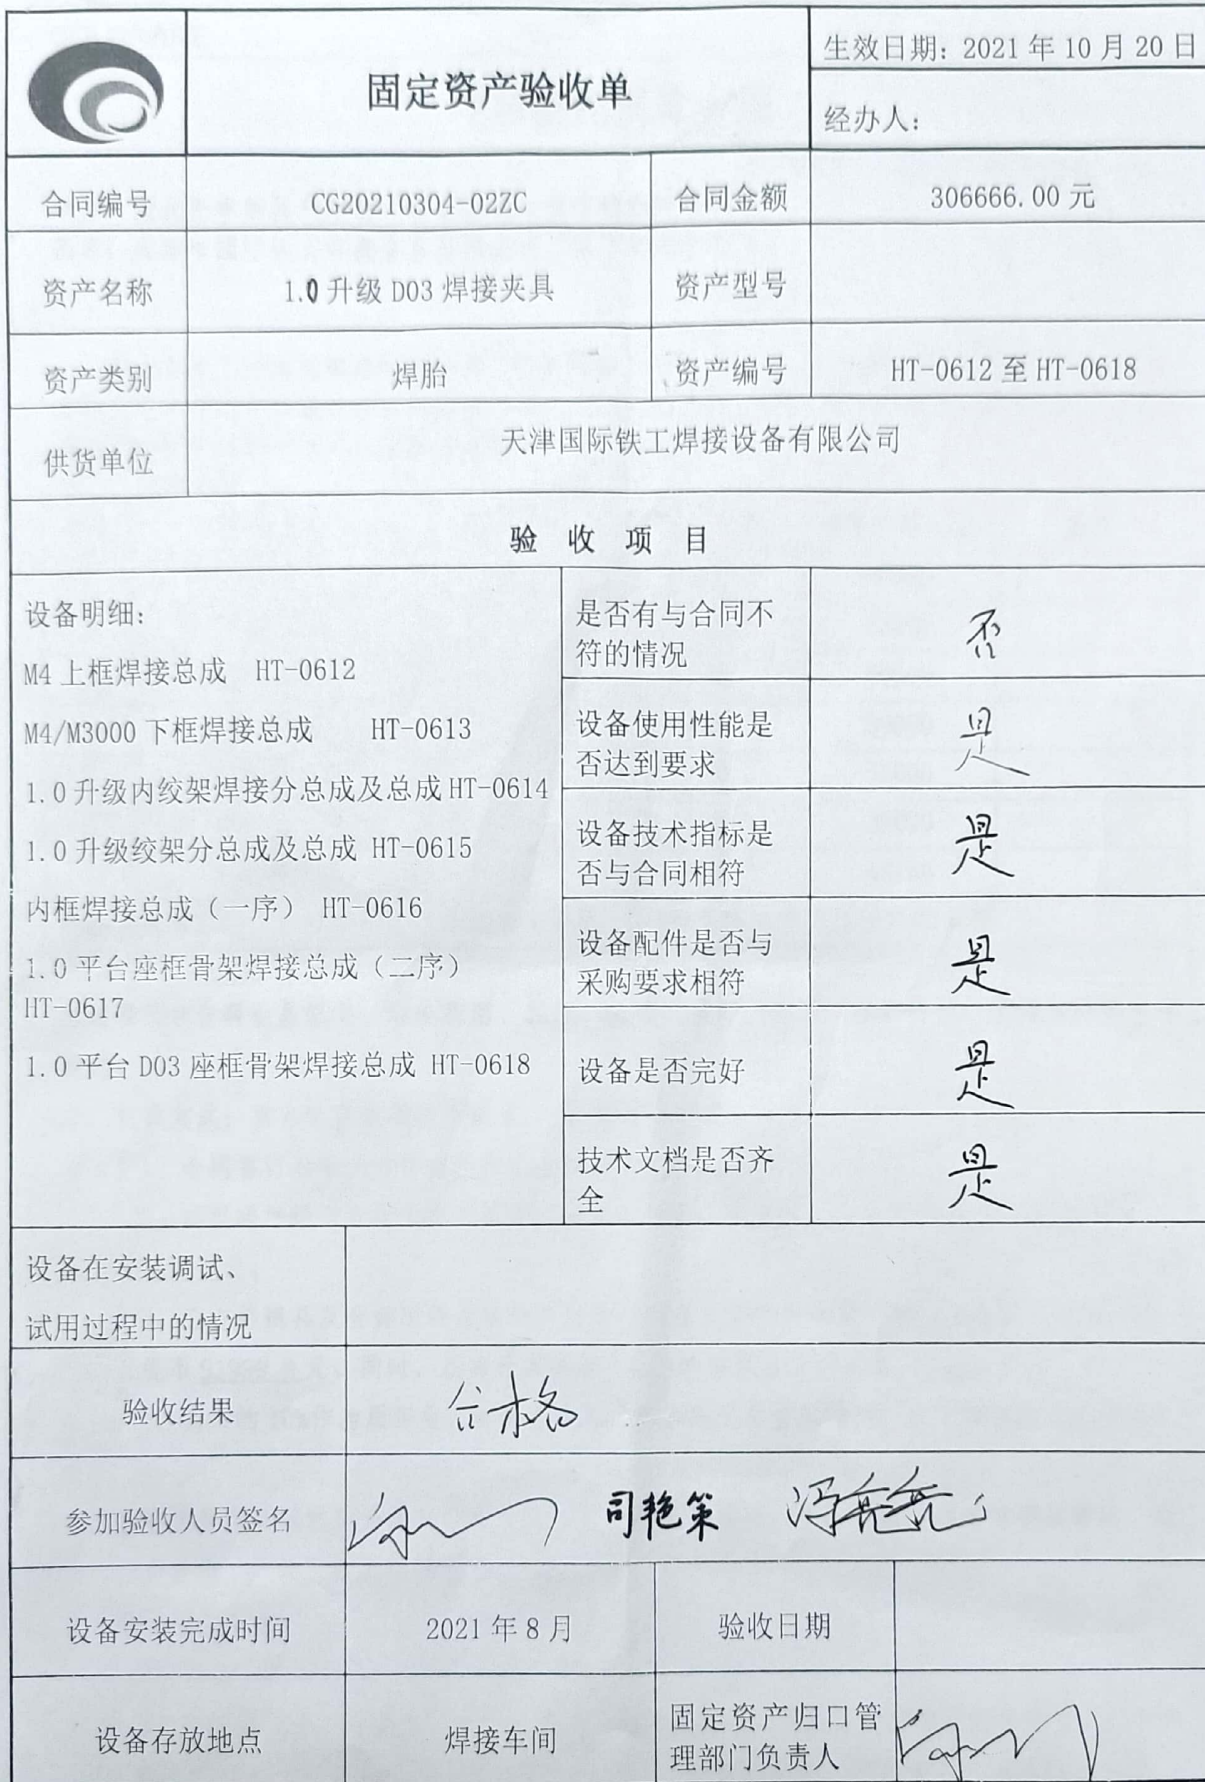 固定资产验收单
生效日期：2021 年 10 月 20 日
经办人：
合同编号 CG20210304-02ZC 合同金额 306666.00 元
资产名称 1.0 升级 D03 焊接夹具 资产型号
资产类别 焊胎 资产编号 HT-0612 至 HT-0618
供货单位 天津国际铁工焊接设备有限公司
验 收 项 目
设备明细：
M4 上框焊接总成 HT-0612
M4/M3000 下框焊接总成 HT-0613
1.0 升级内绞架焊接分总成及总成 HT-0614
1.0 升级绞架分总成及总成 HT-0615
内框焊接总成（一序） HT-0616
1.0 平台座框骨架焊接总成（二序）
HT-0617
1.0 平台 D03 座框骨架焊接总成 HT-0618
是否有与合同不
符的情况
否
设备使用性能是
否达到要求
是
设备技术指标是
否与合同相符
是
设备配件是否与
采购要求相符
是
设备是否完好
是
技术文档是否齐
全
是
设备在安装调试、
试用过程中的情况
验收结果 合格
参加验收人员签名 司艳策 冯亮亮
设备安装完成时间 2021 年 8 月 验收日期
设备存放地点 焊接车间
固定资产归口管
理部门负责人